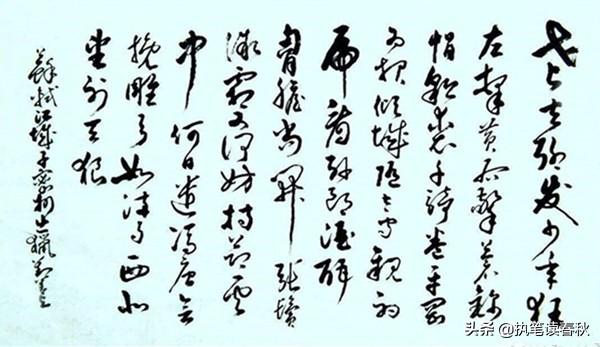 老夫聊发少年狂
左牵黄右擎苍锦
帽貂裘千骑卷平冈
为报倾城随太守亲射
虎看孙郎酒酣
胸胆尚开张鬓
微霜又何妨持节云
中何日遣冯唐会
挽雕弓如满月西北
望射天狼
苏轼江城子密州出猎
头条 @执笔读春秋